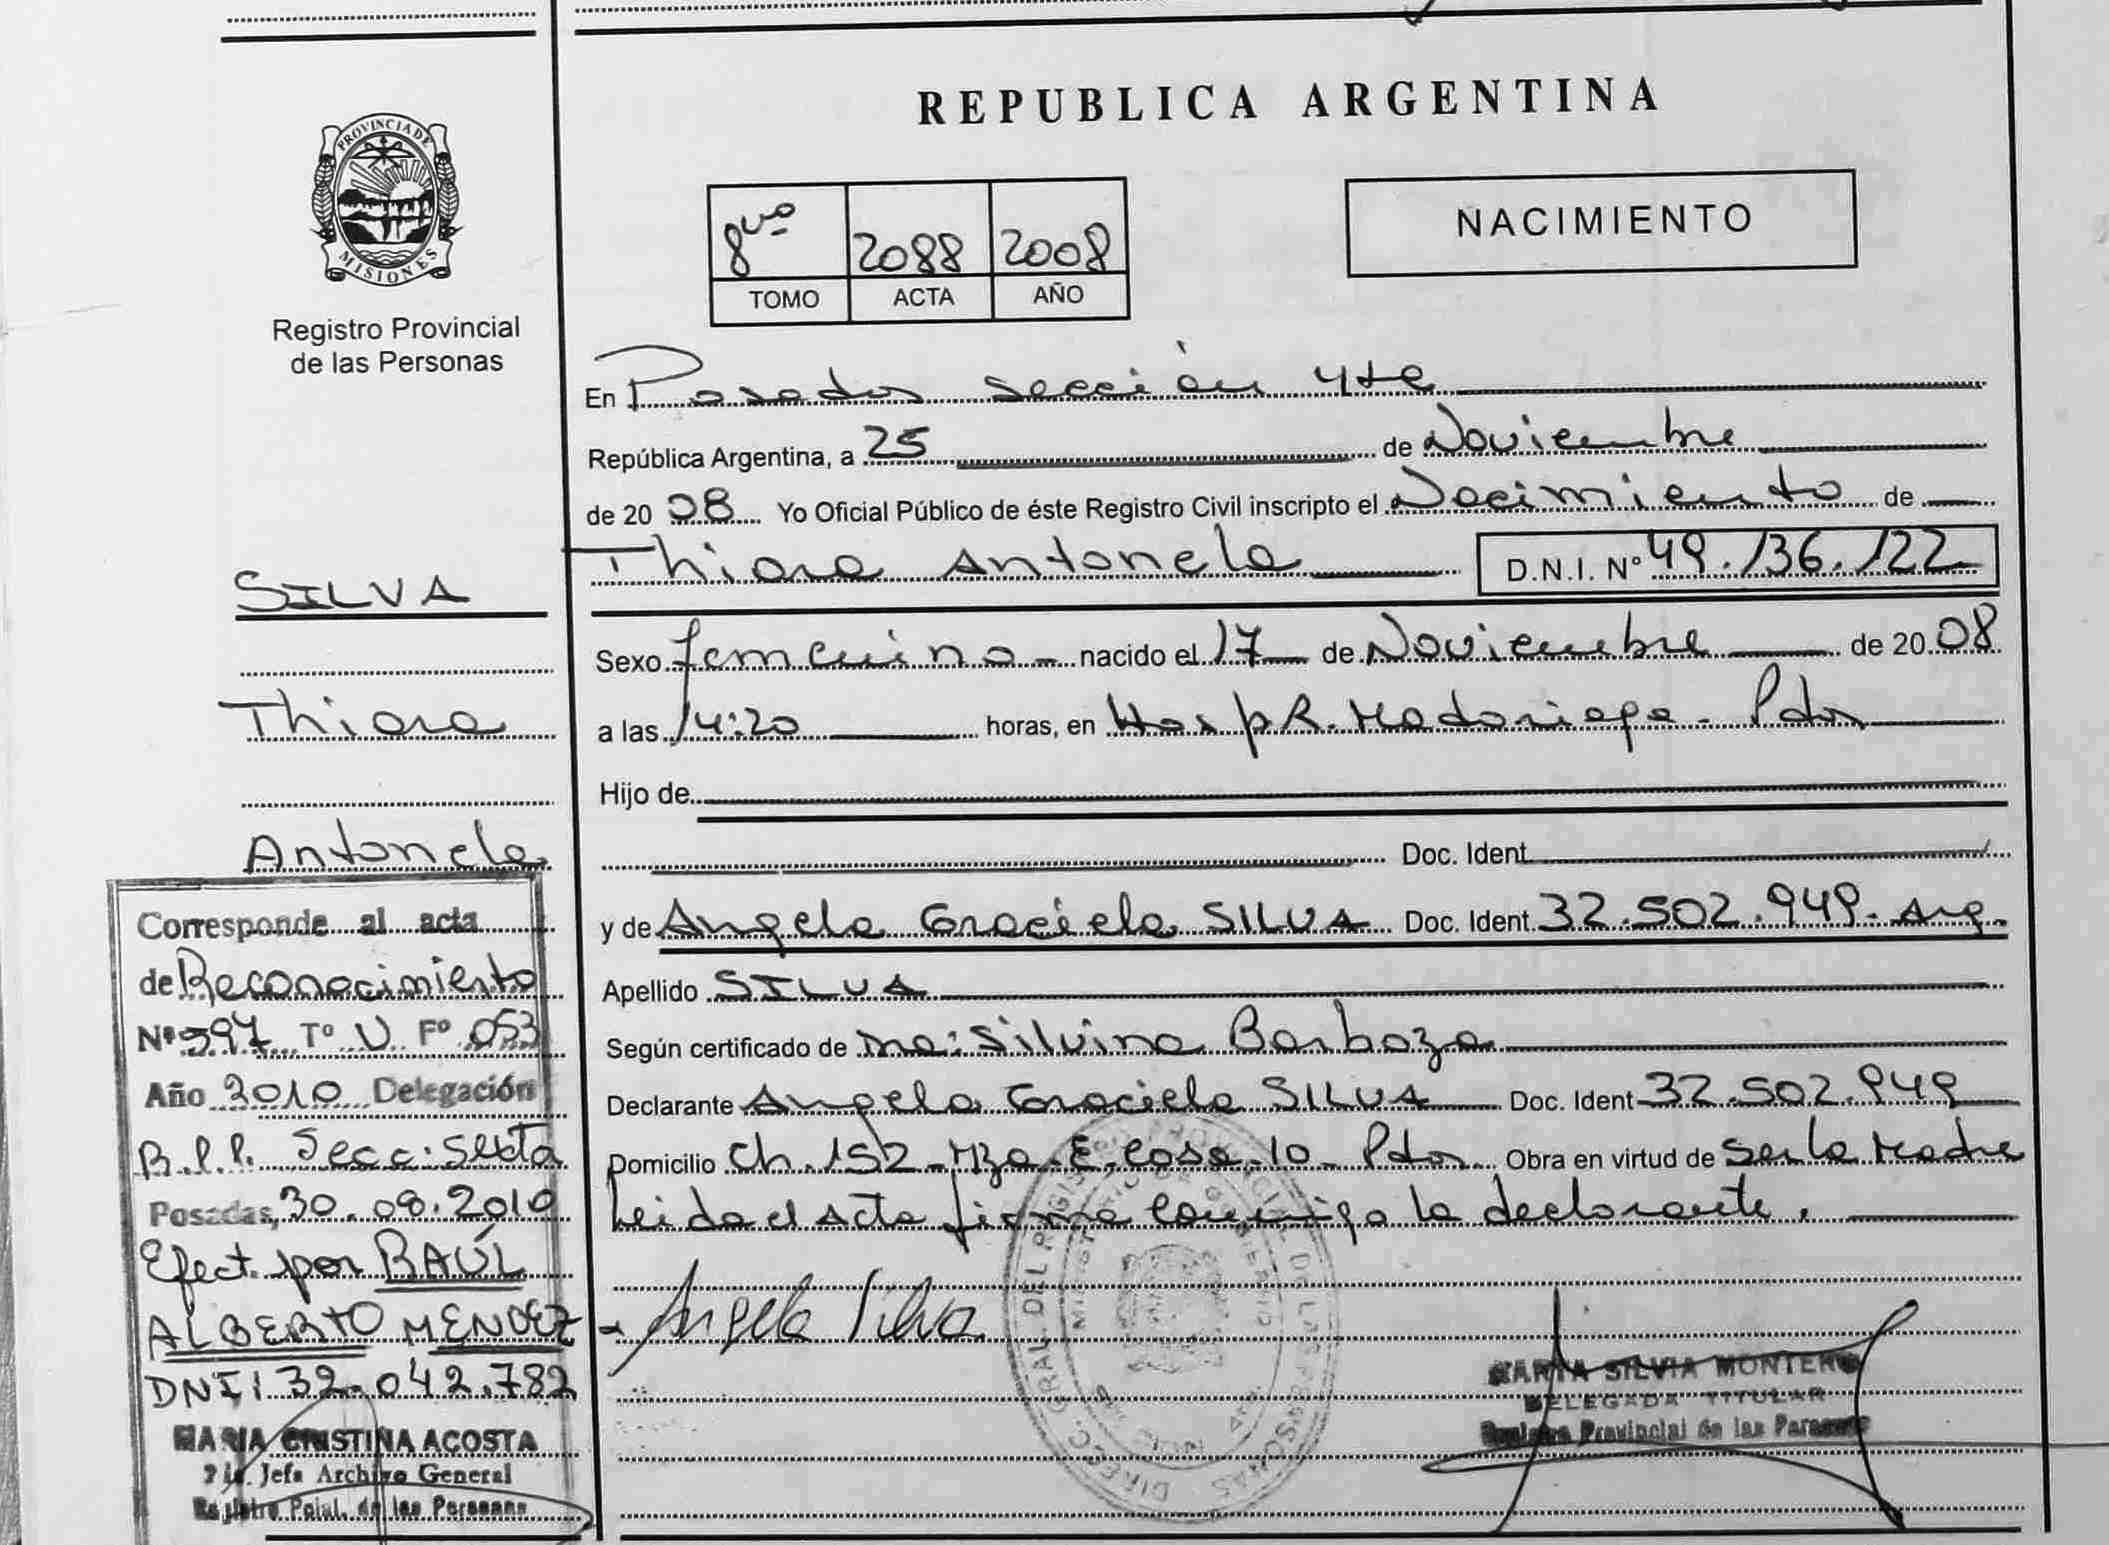 PROVINCIA DE
MISIONES
Registro Provincial
de las Personas
SILVA
Thiara
Antonela
Corresponde al acta
de Reconocimiento
Nº 597 Tº V Fº 053
Año 2010 Delegación
R.P.P. Secc. Sexta
Posadas, 30.08.2010
Efect. por RAÚL
ALBERTO MENDEZ
DNI: 32.042.782
MARIA CRISTINA ACOSTA
Jefa Archivo General
Registro Pcial. de las Personas
REPUBLICA ARGENTINA
8vo 2088 2008
TOMO ACTA AÑO
NACIMIENTO
En Posadas sección 4ta
República Argentina, a 25 de Noviembre
de 2008 Yo Oficial Público de éste Registro Civil inscripto el Nacimiento de
Thiara Antonela D.N.I. Nº 49.136.122
Sexo femenino nacido el 17 de Noviembre de 2008
a las 14:20 horas, en Hosp R. Madariaga - Pdas
Hijo de
Doc. Ident.
y de Angela Graciela SILVA Doc. Ident. 32.502.949. Arg.
Apellido SILVA
Según certificado de Dra: Silvina Barboza
Declarante Angela Graciela SILVA Doc. Ident 32.502.949
Domicilio Ch. 152 - Mza. E. Casa 10 - Pdas Obra en virtud de Ser la Madre
Leida el Acta firma conmigo la declarante.
Angela Silva
DIREC. GRAL. DEL REGISTRO PROVINCIAL DE LAS PERSONAS
MINISTERIO DE GOBIERNO
MARTA SILVIA MONTERO
DELEGADA TITULAR
Registro Provincial de las Personas